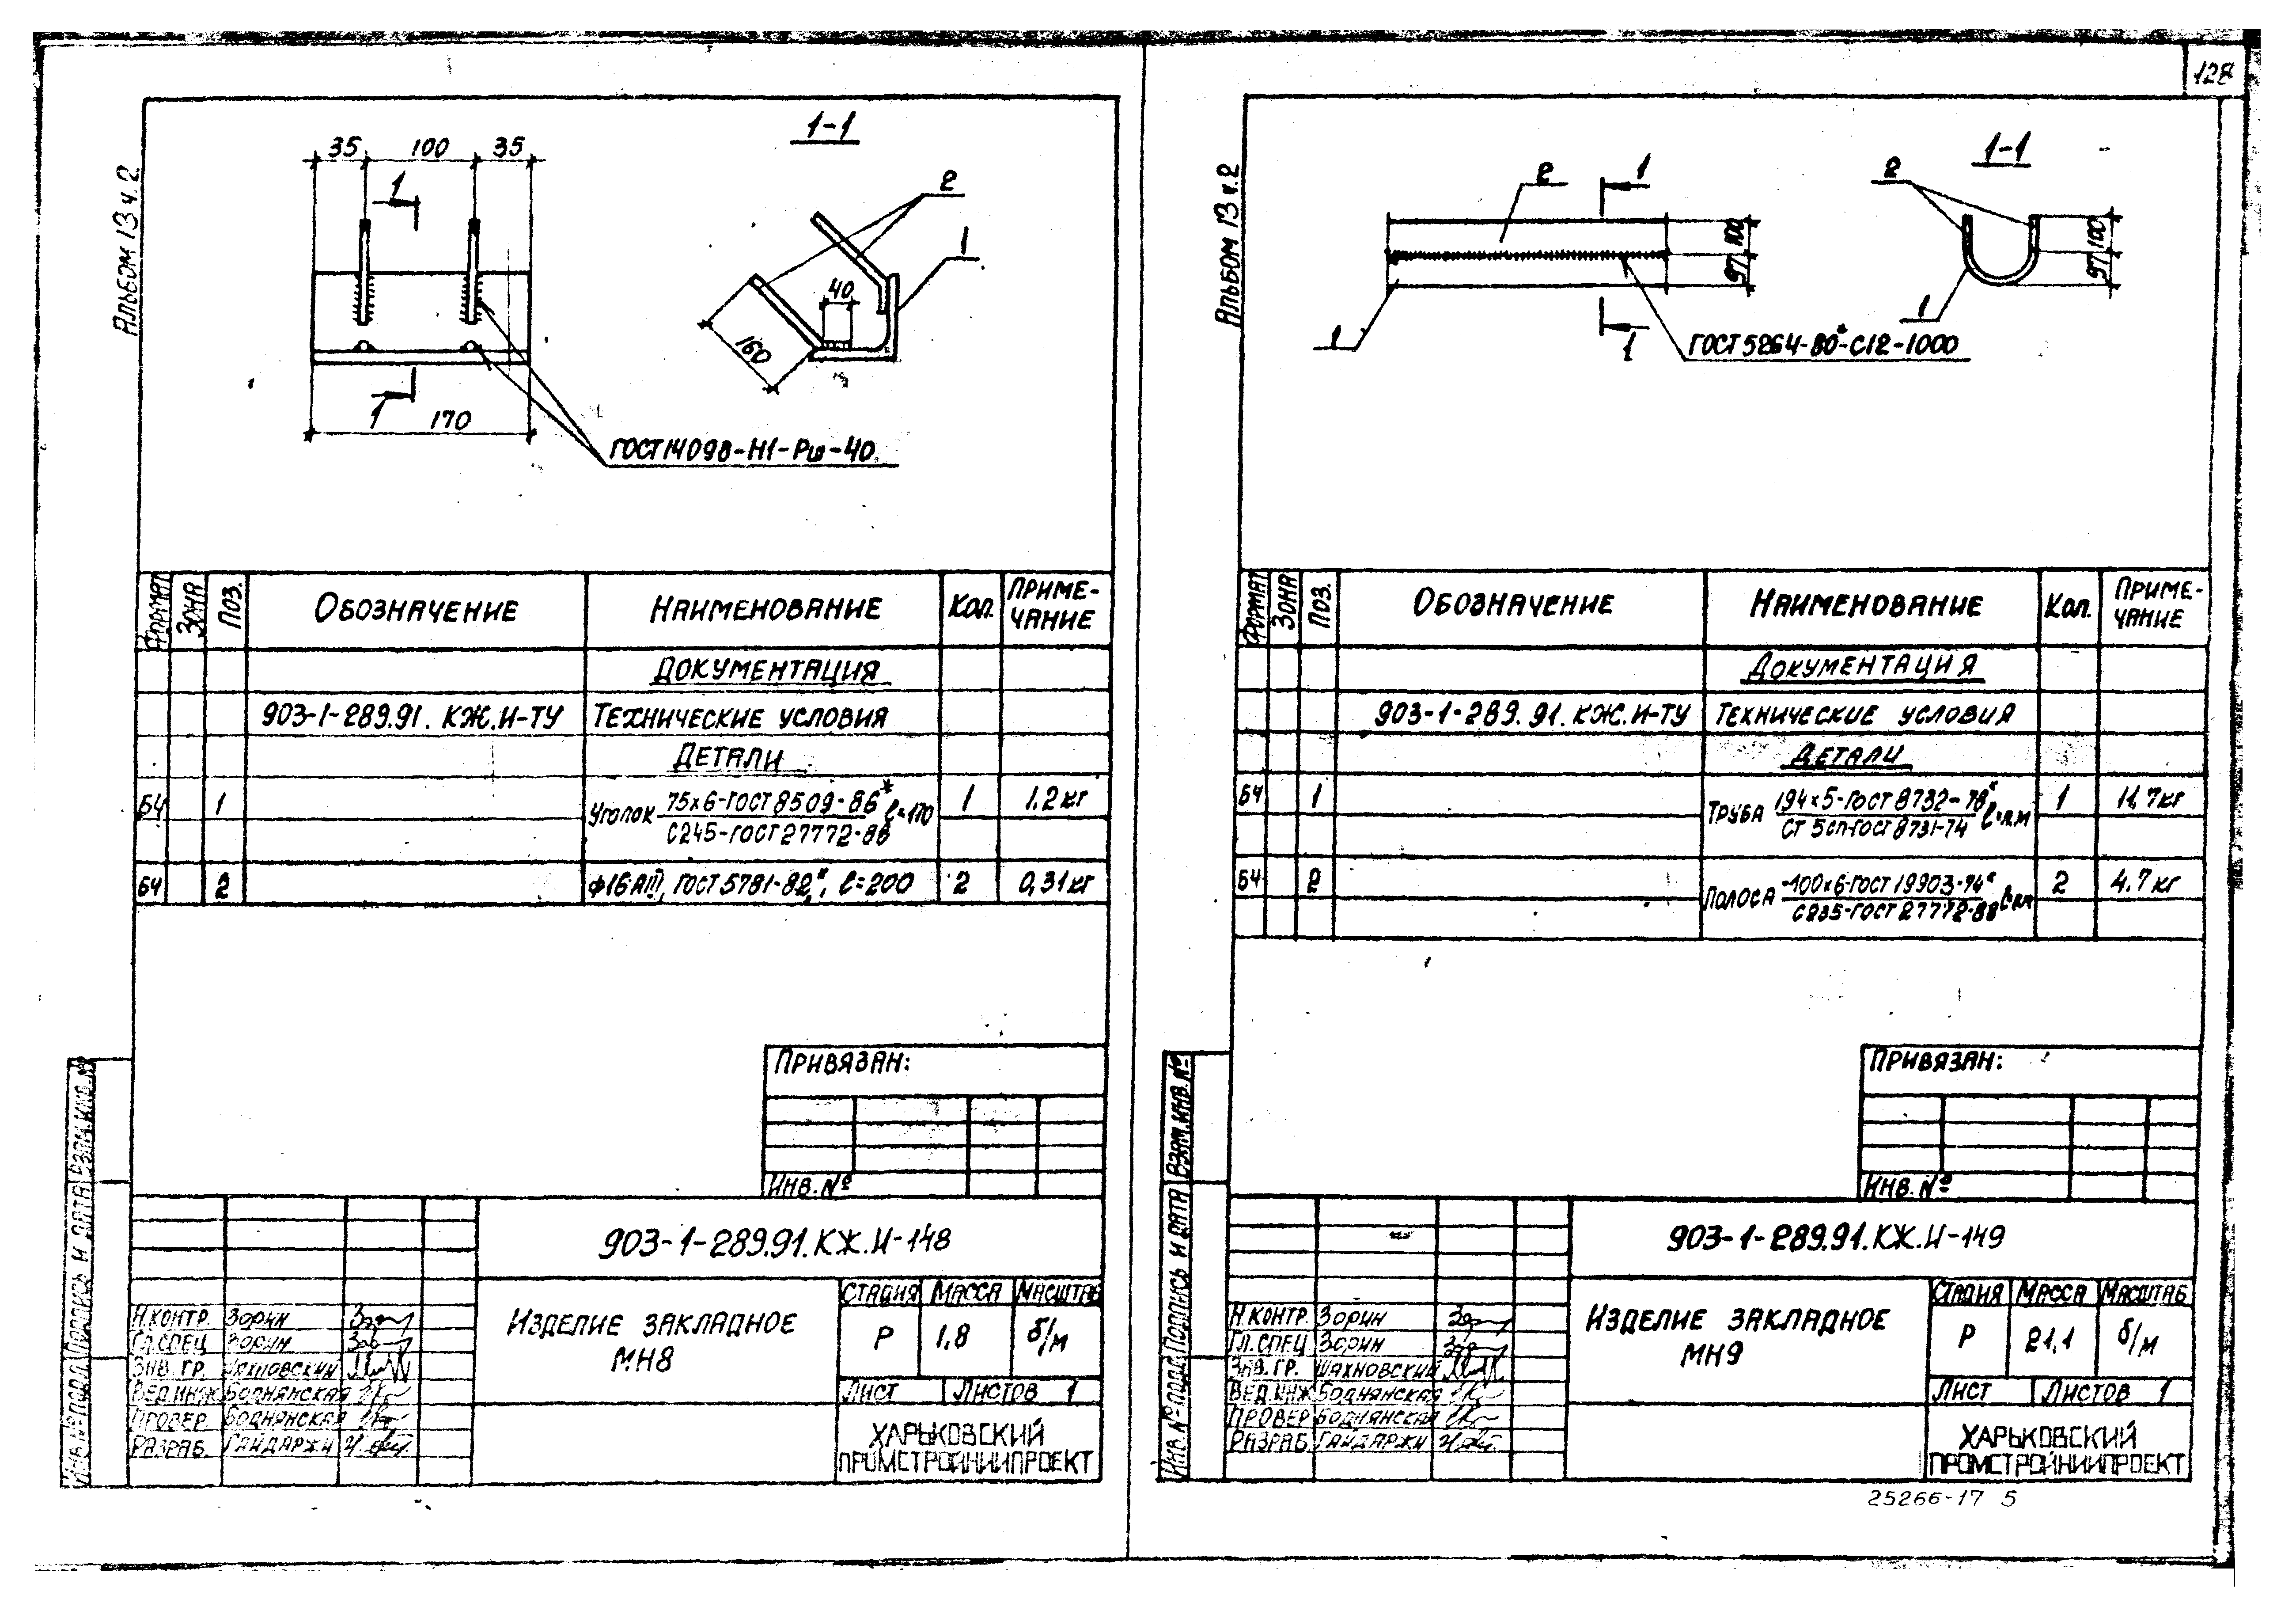 128
Альбом 13 ч.2
35 100 35
1
1
170
ГОСТ14098-Н1-Рш-40
1-1
2
1
40
160
Формат Зона Поз. Обозначение Наименование Кол. Примечание
Документация
903-1-289.91.КЖ.И-ТУ Технические условия
Детали
БЧ 1 Уголок 75х6-ГОСТ 8509-86* ℓ=170 1 1.2кг
С245-ГОСТ 27772-88
БЧ 2 ф16АIII, ГОСТ 5781-82*, ℓ=200 2 0,31кг
Привязан:
Инв.№
903-1-289.91.КЖ.И-148
Изделие закладное
МН8
Стадия Масса Масштаб
Р 1,8 б/м
Лист Листов 1
Харьковский
Промстройниипроект
Н.контр. Зорин
Гл.спец Зорин
Зав.гр. Шахновский
Вед.инж Боднянская
Провер. Боднянская
Разраб. Гайдаржи
Инв.№подл. Подпись и дата Взам.инв.№
Альбом 13 ч.2
2
1
1
1
100
97
ГОСТ 5264-80*-С12-1000
1-1
2
1
100
97
Формат Зона Поз. Обозначение Наименование Кол. Примечание
Документация
903-1-289.91.КЖ.И-ТУ Технические условия
Детали
БЧ 1 Труба 194х5-ГОСТ 8732-78* 1 11,7кг
Ст 5сп-ГОСТ 8731-74
БЧ 2 Полоса -100х6-ГОСТ 19903-74* 2 4.7кг
С235-ГОСТ 27772-88
Привязан:
Инв.№
903-1-289.91.КЖ.И-149
Изделие закладное
МН9
Стадия Масса Масштаб
Р 21,1 б/м
Лист Листов 1
Харьковский
Промстройниипроект
Н.контр. Зорин
Гл.спец Зорин
Зав.гр. Шахновский
Вед.инж Боднянская
Провер Боднянская
Разраб. Гайдаржи
Инв.№подл. Подпись и дата Взам.инв.№
25266-17 5